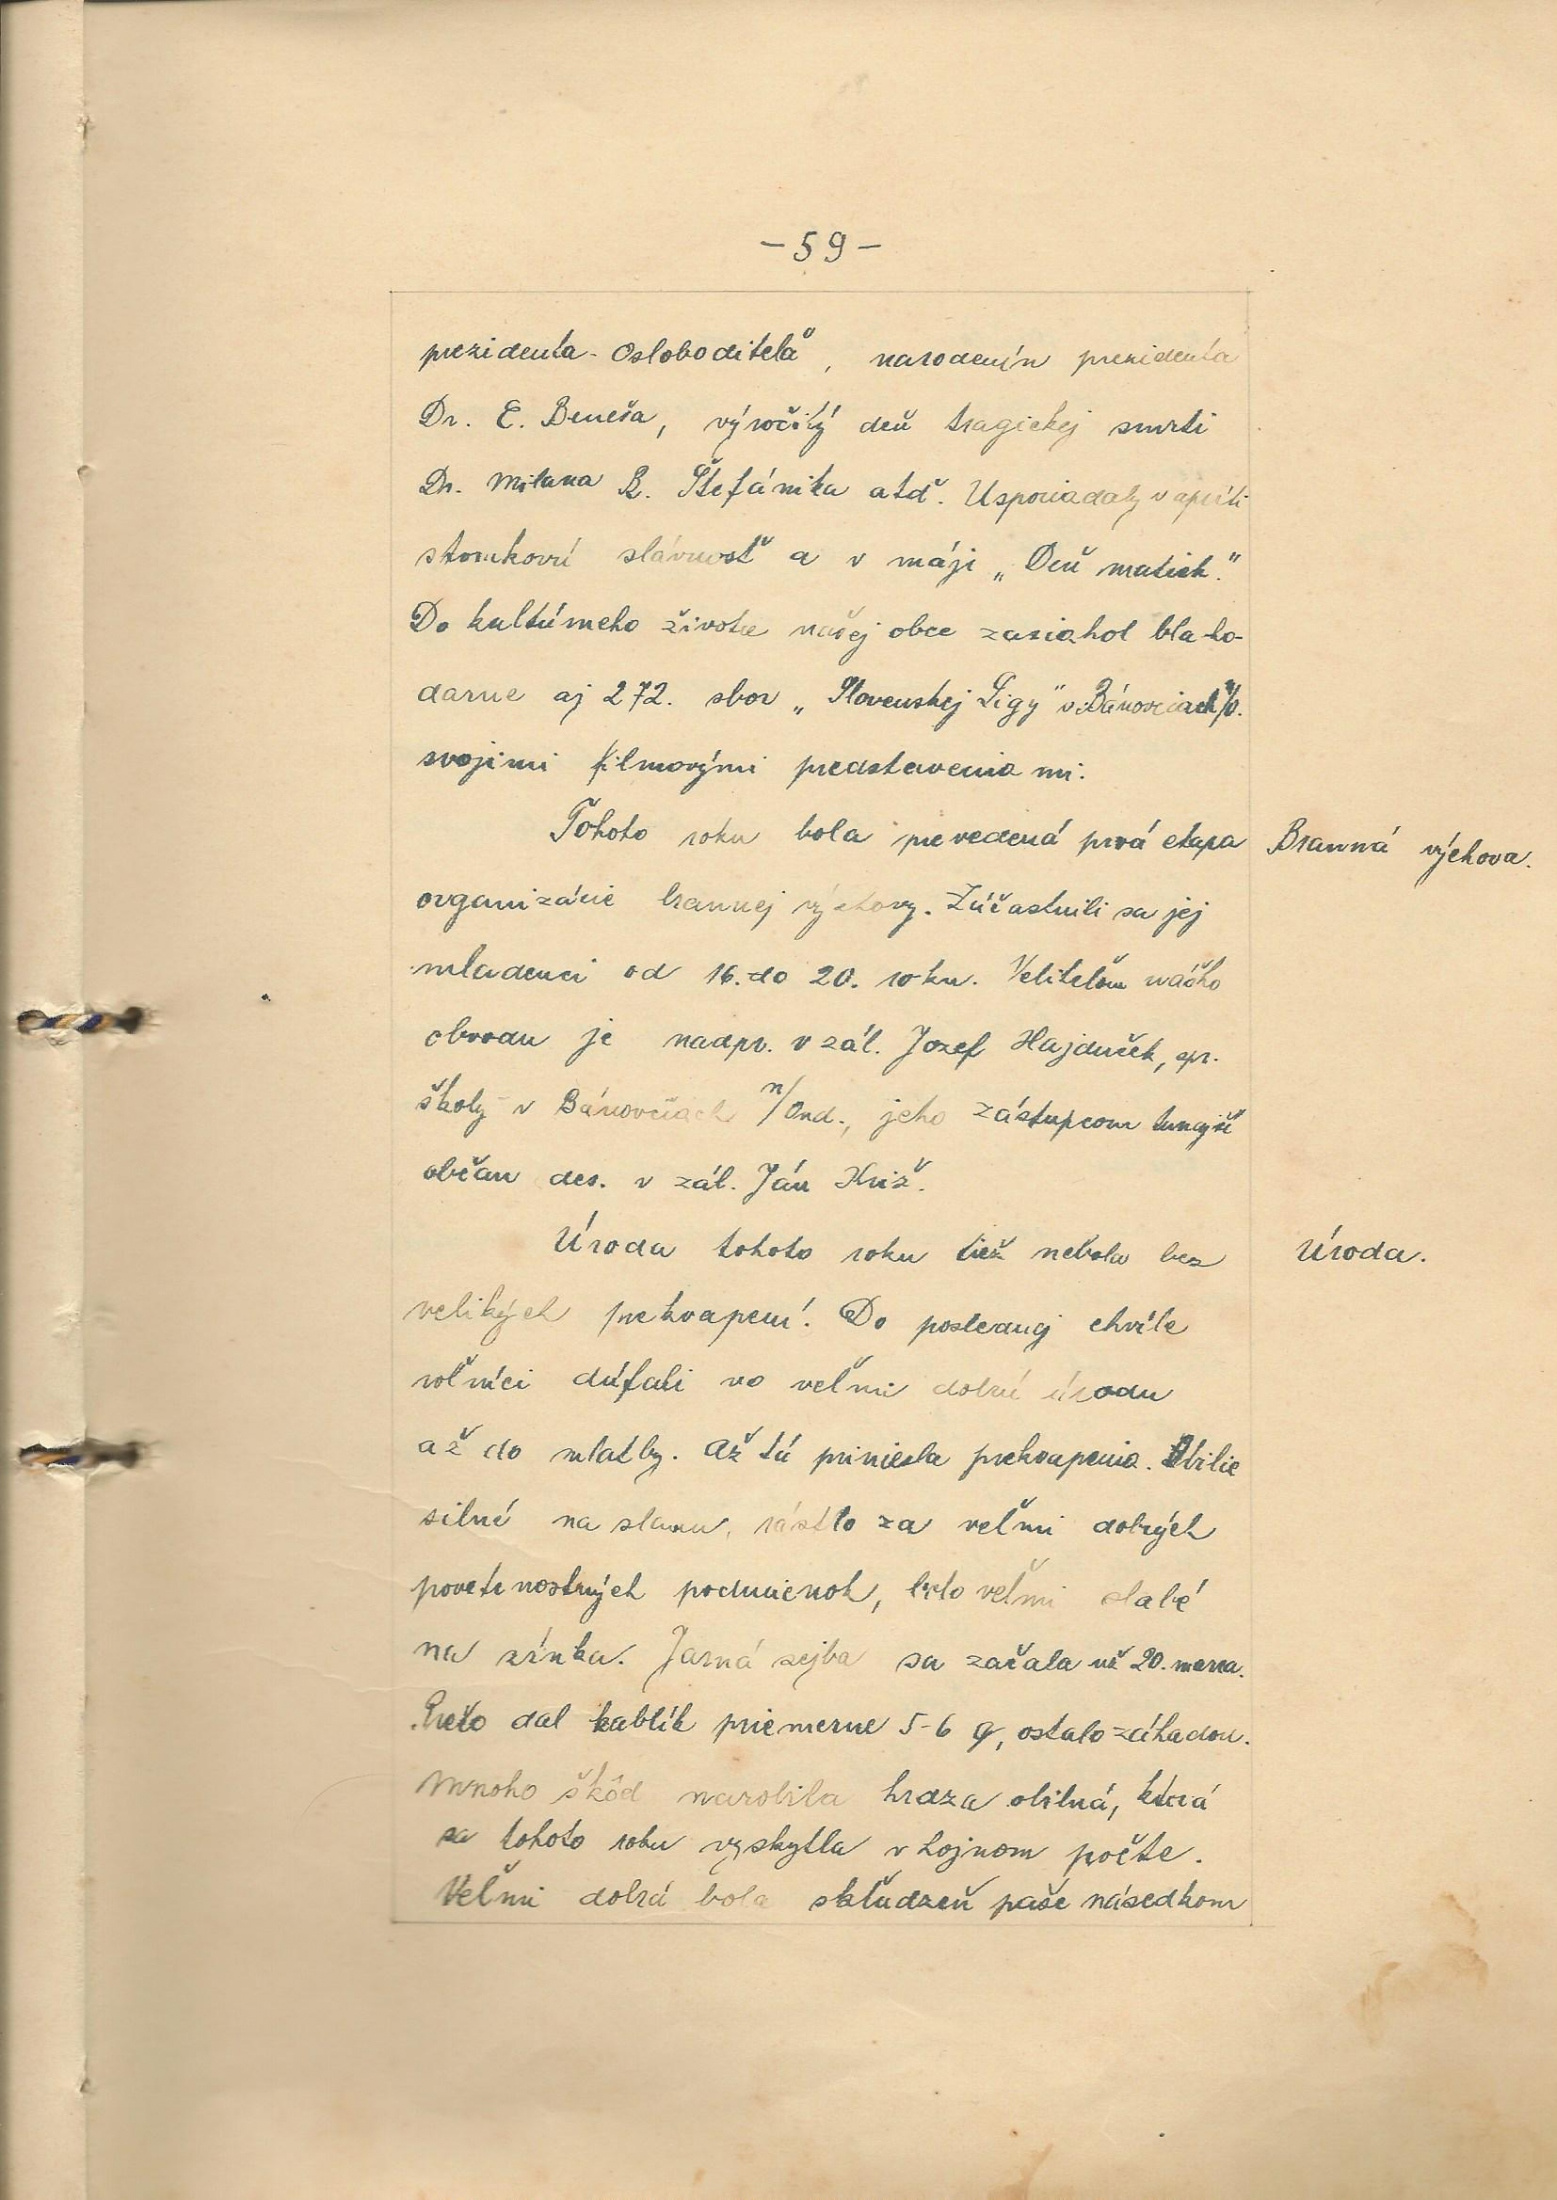 - 59 -
prezidenta-Osloboditeľa, narodenín prezidenta
Dr. E. Beneša, výročitý deň tragickej smrti
Dr. Milana R. Štefánika atď. Usporiadaly v apríli
stromkovú slávnosť a v máji „Deň matiek."
Do kultúrneho života našej obce zasiahol blaho-
darne aj 272. sbor „Slovenskej Ligy" v Bánovciach n/O.
svojimi filmovými predstaveniami.
Tohoto roku bola prevedená prvá etapa
Branná výchova.
organizácie brannej výchovy. Zúčastnili sa jej
mladenci od 16. do 20. roku. Veliteľom nášho
obvodu je nadpr. v zál. Jozef Hajduček, spr.
školy v Bánovciach n/Ond., jeho zástupcom tunajší
občan des. v zál. Ján Križ.
Úroda tohoto roku tiež nebola bez
Úroda.
velikých prekvapení. Do poslednej chvíle
roľníci dúfali vo veľmi dobrú úrodu
až do mlatby. Až tá priniesla prekvapenia. Obilie
silné na slamu, rástlo za veľmi dobrých
poveternostných podmienok, bolo veľmi slabé
na zrnka. Jarná sejba sa začala už 20. marca.
Prečo dal kablík priemerne 5-6 q, ostalo záhadou.
Mnoho škôd narobila hrdza obilná, ktorá
sa tohoto roku vyskytla v hojnom počte.
Veľmi dobrá bola skľudzeň paše násedkom